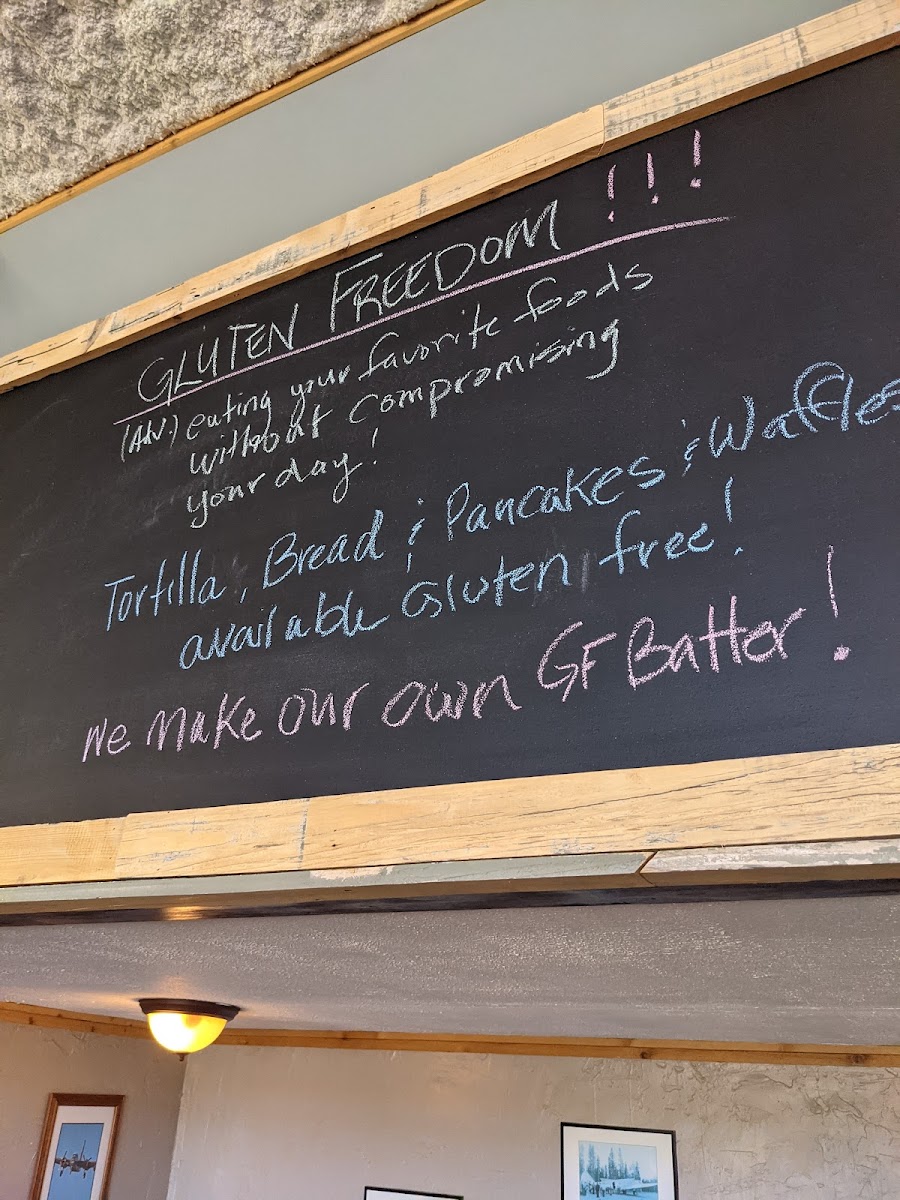 GLUTEN FREEDOM !!!
eating your favorite foods
without compromising
your day!
Tortilla, Bread & Pancakes & Waffles
available Gluten free!
We Make our own GF Batter!